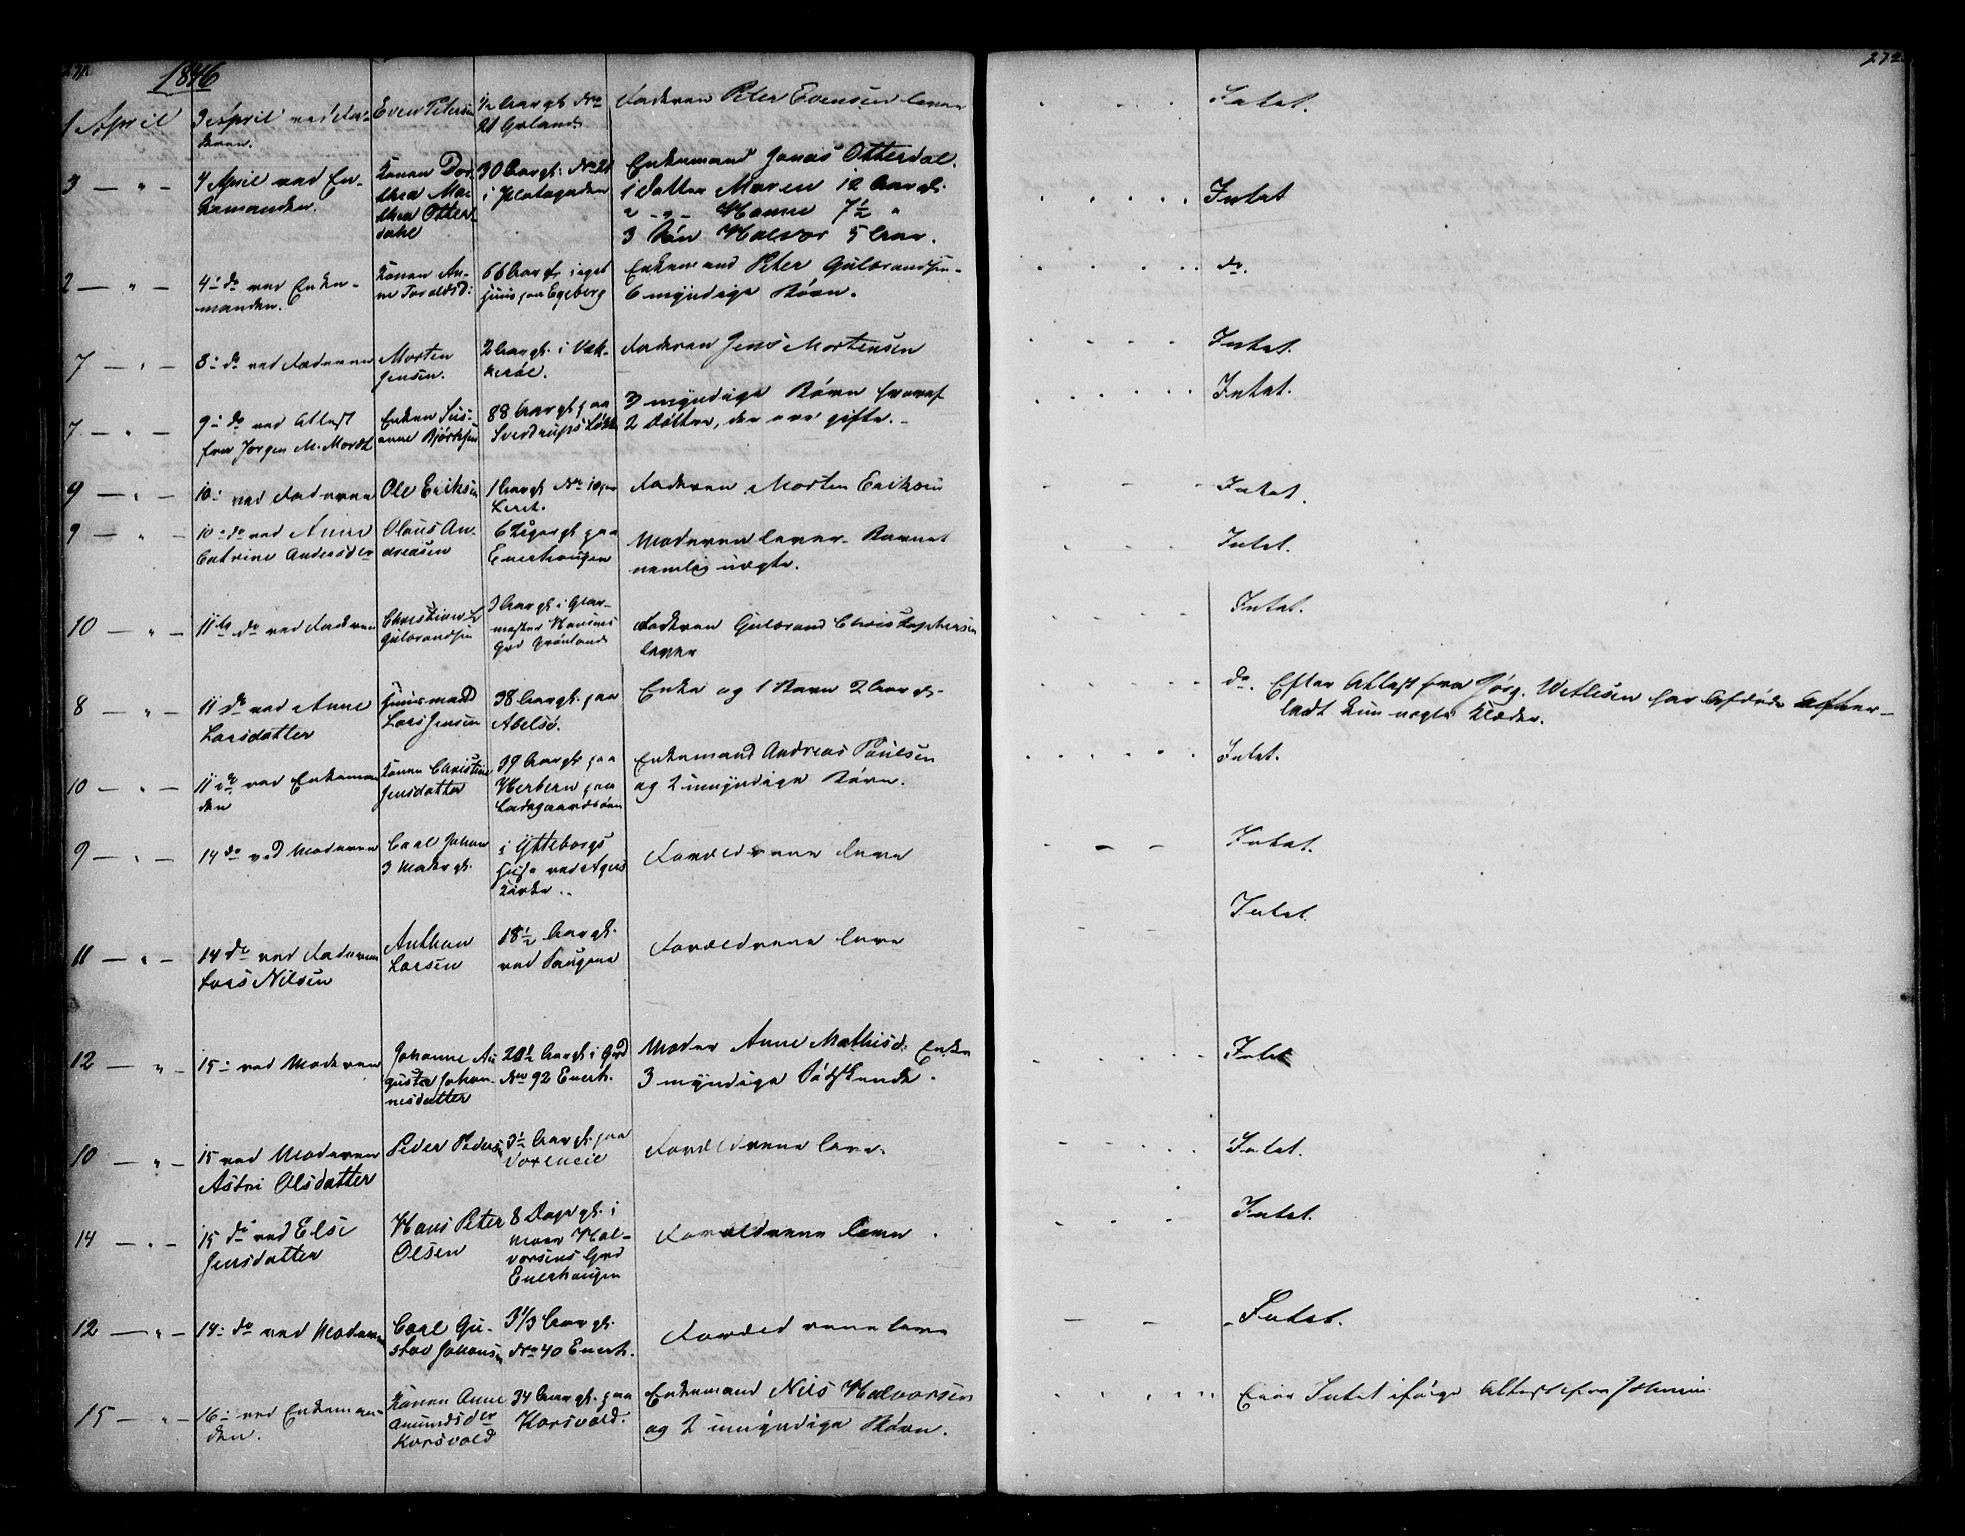 271.
1846
272
1 April
3 April ved Fa-
deren.
Even Petersen
1/2 Aar gl. No
21 Grland
Faderen Peter Evensen lever
Intet.
3 — " —
4 April ved En-
kemanden.
Konen Dor-
thea Ma-
thea Otter-
dahl
30 Aar gl. No 21
i Platogaden
Enkemand Jonas Otterdal.
1 Datter Maren 12 Aar gl.
2 - " - Hanne 7½ "
3 Søn Halvor 5 Aar.
Intet
2 — " —
4 - do ved Enke-
manden.
Konen An-
ne Toraldsd:
66 Aar gl. i eget
Huus paa Egeberg
Enkemand Peter Gulbrandsen -
6 myndige Børn.
do.
7 — " —
8 - do ved Faderen
Morten
Jensen.
2 Aar gl. i Væk-
kerøe.
Faderen Jens Mortensen
Intet.
7 — " —
9 - do ved Attest
fra Jørgen M. Mordt
Enken Sus-
anne Bjørksen
88 Aar gl. paa
Sverdrups Løkke
3 myndige Børn hvoraf
2 Døttre, der ere gifte. -
Intet.
9 — " —
10 - ved Faderen
Ole Eriksen
1 Aar gl. No 10 paa
Leret.
Faderen Morten Eriksen
Intet.
9 — " —
10 - do ved Anne
Catrine Andersder
Olaus An-
dreasen
6 Uger gl. paa
Enerhaugen
Moderen lever - Barnet
nemlig uægte.
Intet.
10 — " —
11te do ved Faderen
Christian
Gulbrandsen
3 Aar gl. i Glar-
mester Hansens
Grd Grønland
Faderen Gulbrand Christophersen
lever
Intet.
8 — " —
11 do ved Anne
Larsdatter
Huusmand
Lars Jensen
38 Aar gl. paa
Abelsø.
Enke og 1 Barn 2 Aar gl. -
do. Efter Attest fra Jørg. Wetlesen har Afdøde efter-
ladt kun nogle Klæder.
10 — " —
11 do ved Enkeman
den
Konen Christine
Jensdatter
39 Aar gl. paa
Herbern paa
Ladegaardsøen
Enkemand Andreas Paulsen
og 2 umyndige Børn.
Intet.
9 — " —
14 do ved Moderen
Carl Johan
3 Mdr gl.
i Ytteborgs
Huse ved Agers
Kirke. .
Forældrene leve
Intet.
11 — " —
14 do ved Faderen
Lars Nilsen
Anthon
Larsen
18½ Aar gl.
ved Saugene
Forældrene leve
Intet.
12 — " —
15 - ved Moderen
Johanne Au
gusta Johan-
nesdatter
20½ Aar gl. i Grd
No 92 Enerh.
Moder Anne Mathisd: Enke
3 myndige Sødskende.
Intet
10 — " —
15 ved Moderen
Astri Olsdatter
Peder Peders.
3½ Aar gl. paa
Forældrene leve.
Intet.
14 — " —
15 do ved Else
Jensdatter
Hans Peter
Olsen
8 Dage gl. i
Hal-
vorsens Grd
Enerhaugen
Forældrene leve
Intet.
12 — " —
14 - do ved Moderen
Carl Gu-
stav Johansen
3 1/3 Aar gl.
No 40 Enerh.
Forældrene leve
Intet.
15 — " —
16 - ved Enkeman-
den.
Konen Anne
Amundsder
Korsvold
34 Aar gl. paa
Korsvold.
Enkemand Nils Halvorsen
og 2 umyndige Børn.
Eier Intet ifølge Attest fra